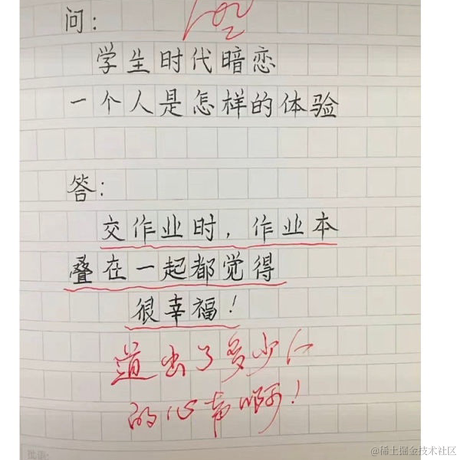 问：
学生时代暗恋
一个人是怎样的体验
答：
交作业时，作业本
叠在一起都觉得
很幸福！
道出了多少人
的心声啊！
@稀土掘金技术社区